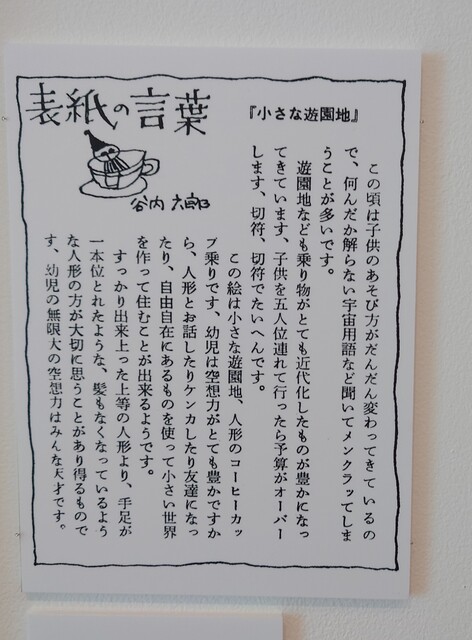 表紙の言葉
谷内六郎
『小さな遊園地』
この頃は子供のあそび方がだんだん変わってきているの
で、何んだか解らない宇宙用語など聞いてメンクラッてしま
うことが多いです。
遊園地なども乗り物がとても近代化したものが豊かになっ
てきています、子供を五人位連れて行ったら予算がオーバー
します、切符、切符でたいへんです。
この絵は小さな遊園地、人形のコーヒーカッ
プ乗りです、幼児は空想力がとても豊かですか
ら、人形とお話したりケンカしたり友達になっ
たり、自由自在にあるものを使って小さい世界
を作って住むことが出来るようです。
すっかり出来上った上等の人形より、手足が
一本位とれたような、髪もなくなっているよう
な人形の方が大切に思うことがあり得るもので
す、幼児の無限大の空想力はみんな天才です。